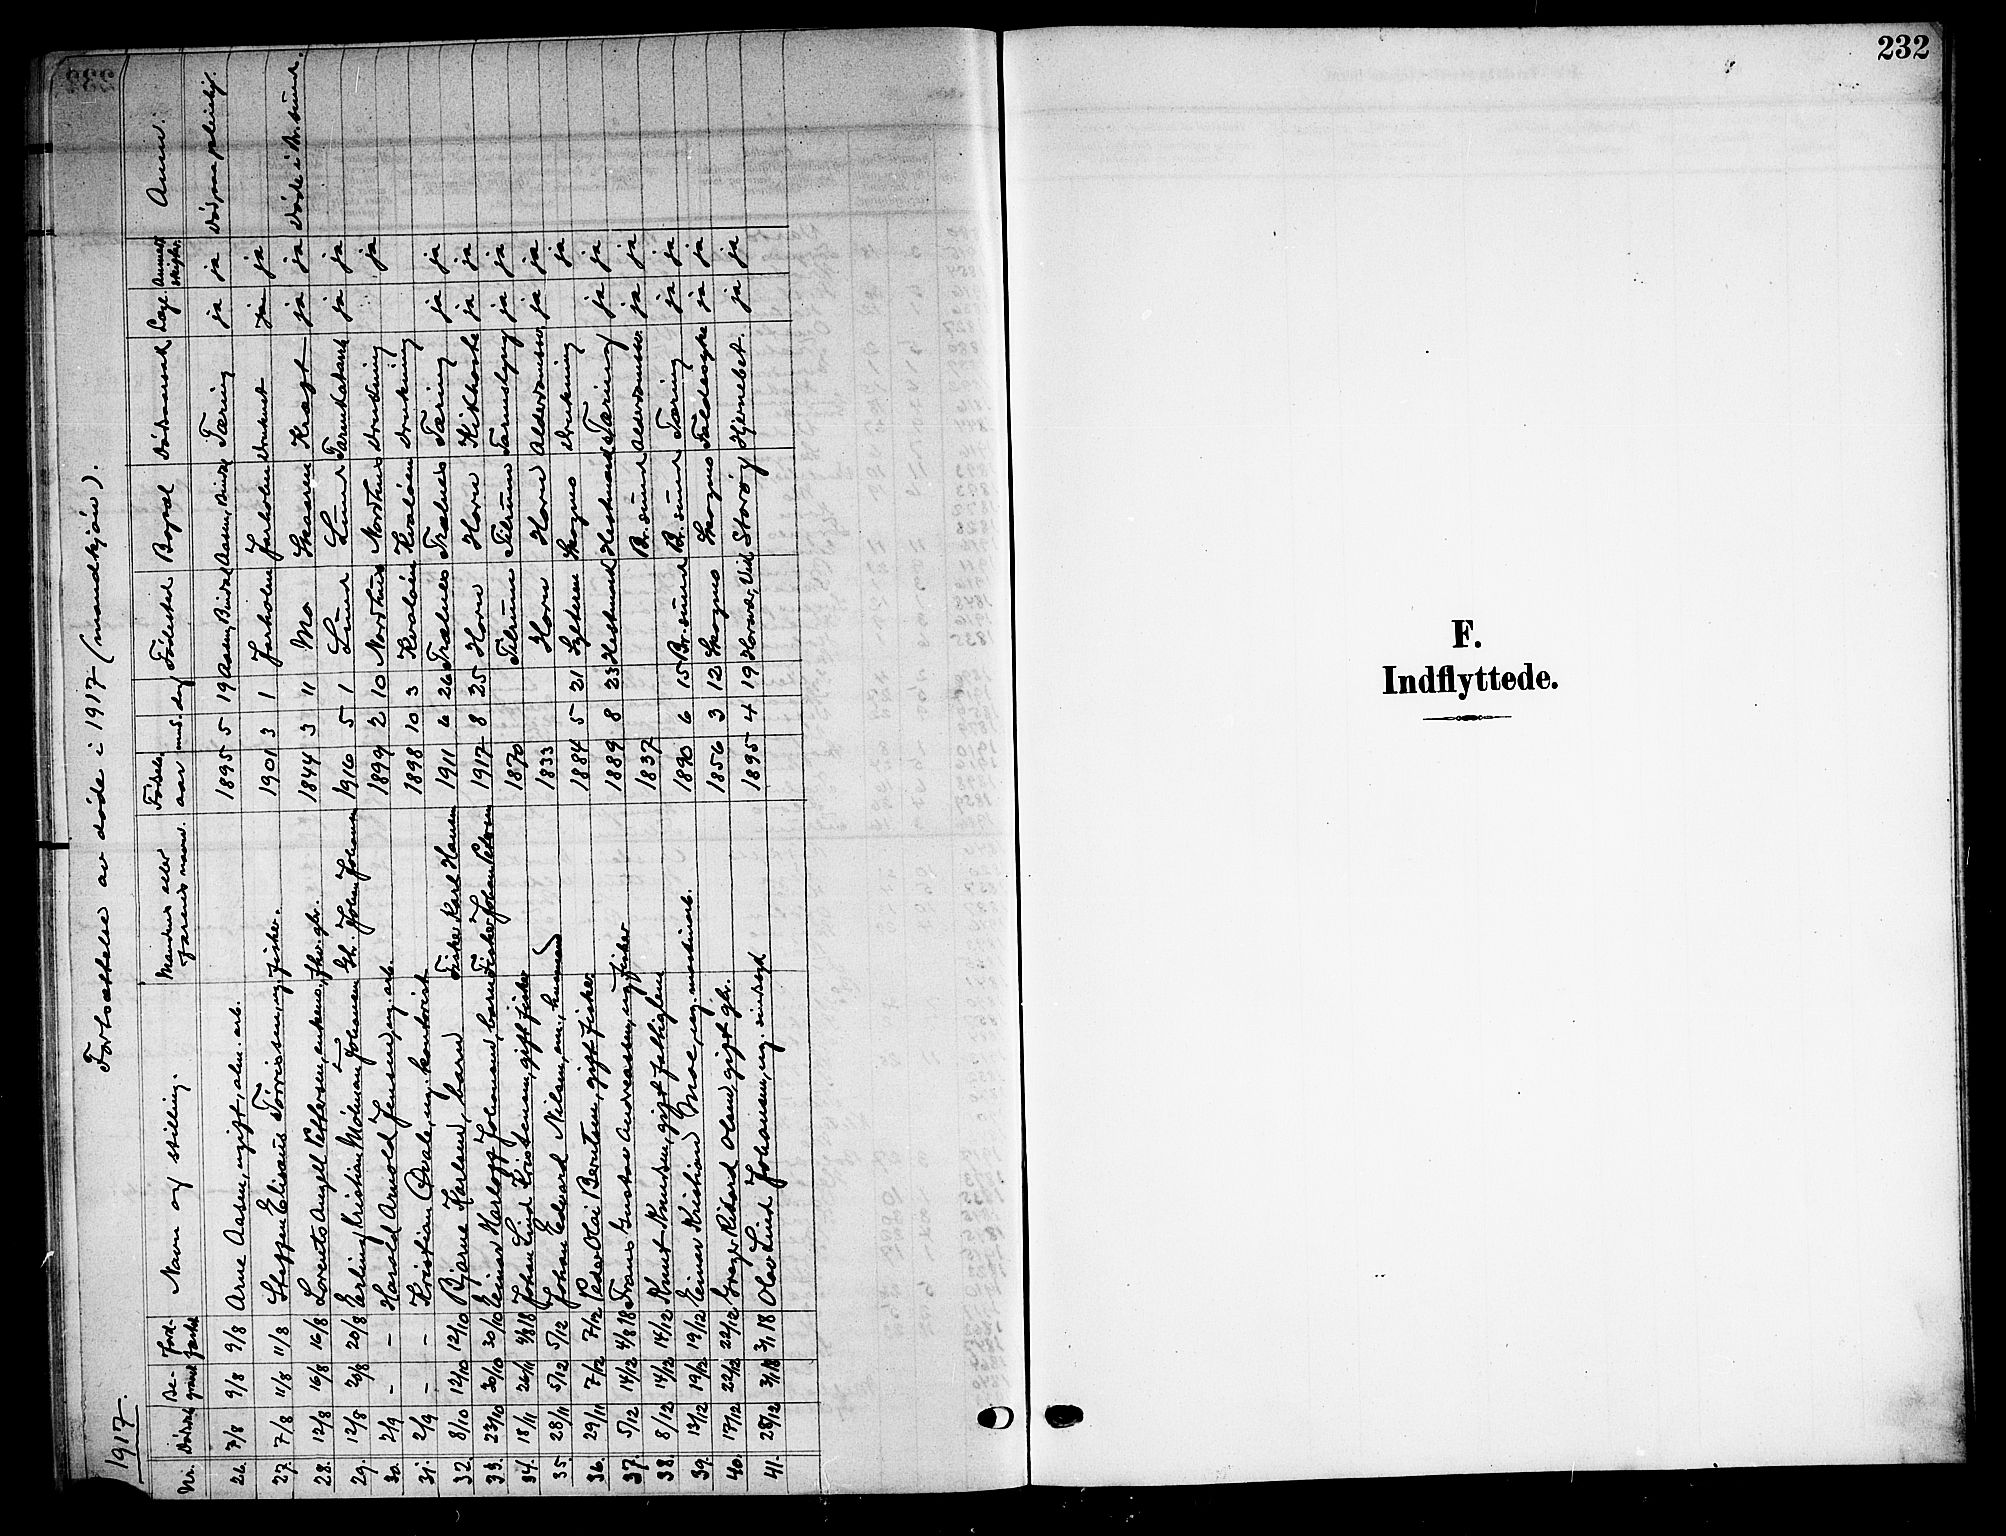 1917.
Fortsættelse av døde i 1917 (mandkjøn).
Nr. Dødsd. Begravet Jordfæstet Navn og stilling. Mandens eller farens navn. Fødsels aar mnd. dag Fødested Bopæl Dødsaarsak Læge. Anmeldt skifter. Anm.
26. 7/8 9/8 9/8 Arne Aasen, ugift, alm. arb. 1895 5 19 Aasen, Bindal Aasen, Bindal Tæring ja ja Død paa pleiehj.
27. 7/8 11/8 11/8 Steffen Elisæus Tørrissen, ug. fisker. 1901 3 1 Jarholm Jarholm Druknet ja
28. 12/8 16/8 16/8 Lorents Angell Pettersen, enkem., fhv. gbr. 1844 3 11 Mo Skaaren Kræft ja ja Døde i Br.sund.
29. 12/8 20/8 20/8 Erling Kristian Johansen Gbr. Johan Johansen 1916 5 1 Lund Lund Tarmkatarrh ja ja
30. 2/9 – – Harald Arnold Jensen, ug. arb. 1899 2 10 Nordhus Nordhus Drukning ja
31. 2/9 – – Kristian Qvale, ug. kontorist 1898 10 3 Kvaløen Kvaløen Drukning
32. 8/10 12/10 12/10 Bjarne Karlsen, barn Fisker Karl Hansen 1911 6 26 Trælnes Trælnes Tæring ja ja
33. 23/10 30/10 30/10 Einar Herlogg Johansen, barn Fisker Johan Petersen 1917 8 25 Horn Horn Kikhoste ja ja
34. 18/11 26/11 4/8 18 Johan Lind Kristensen, gift fisker 1870 Tilrum Tilrum Tarmslyng ja ja
35. 28/11 5/12 5/12 Johan Edvard Nilsen, em., husmand 1833 Horn Horn Alderdomssv. ja ja
36. 29/11 7/12 7/12 Peder Olai Berntsen, gift fisker 1884 5 21 Sylteren Skogmo Drukning ja
37. 5/12 14/12 4/8 18 Frans Gustav Andreassen, ug. fisker 1889 8 23 Hestmand Hestmand Tæring ja ja
38. 8/12 14/12 14/12 Knut Knudsen, gift fattiglem 1837 Br.sund Alderdomssv. ja ja
39. 13/12 19/12 19/12 Einar Kristian Moe, ug. maskinarb. 1890 6 15 Br.sund Br.sund Tæring ja ja
40. 17/12 22/12 22/12 Greger Rikard Olsen, gift gbr. 1856 3 12 Skogmo Skogmo Faldesyke ja ja
41. 28/12 3/1 18 3/1 18 Olav Lind Johansen, ug. sindssyk 1895 4 19 Horvær, Vik Storøy Hjernebet. ja ja
232
F.
Indflyttede.